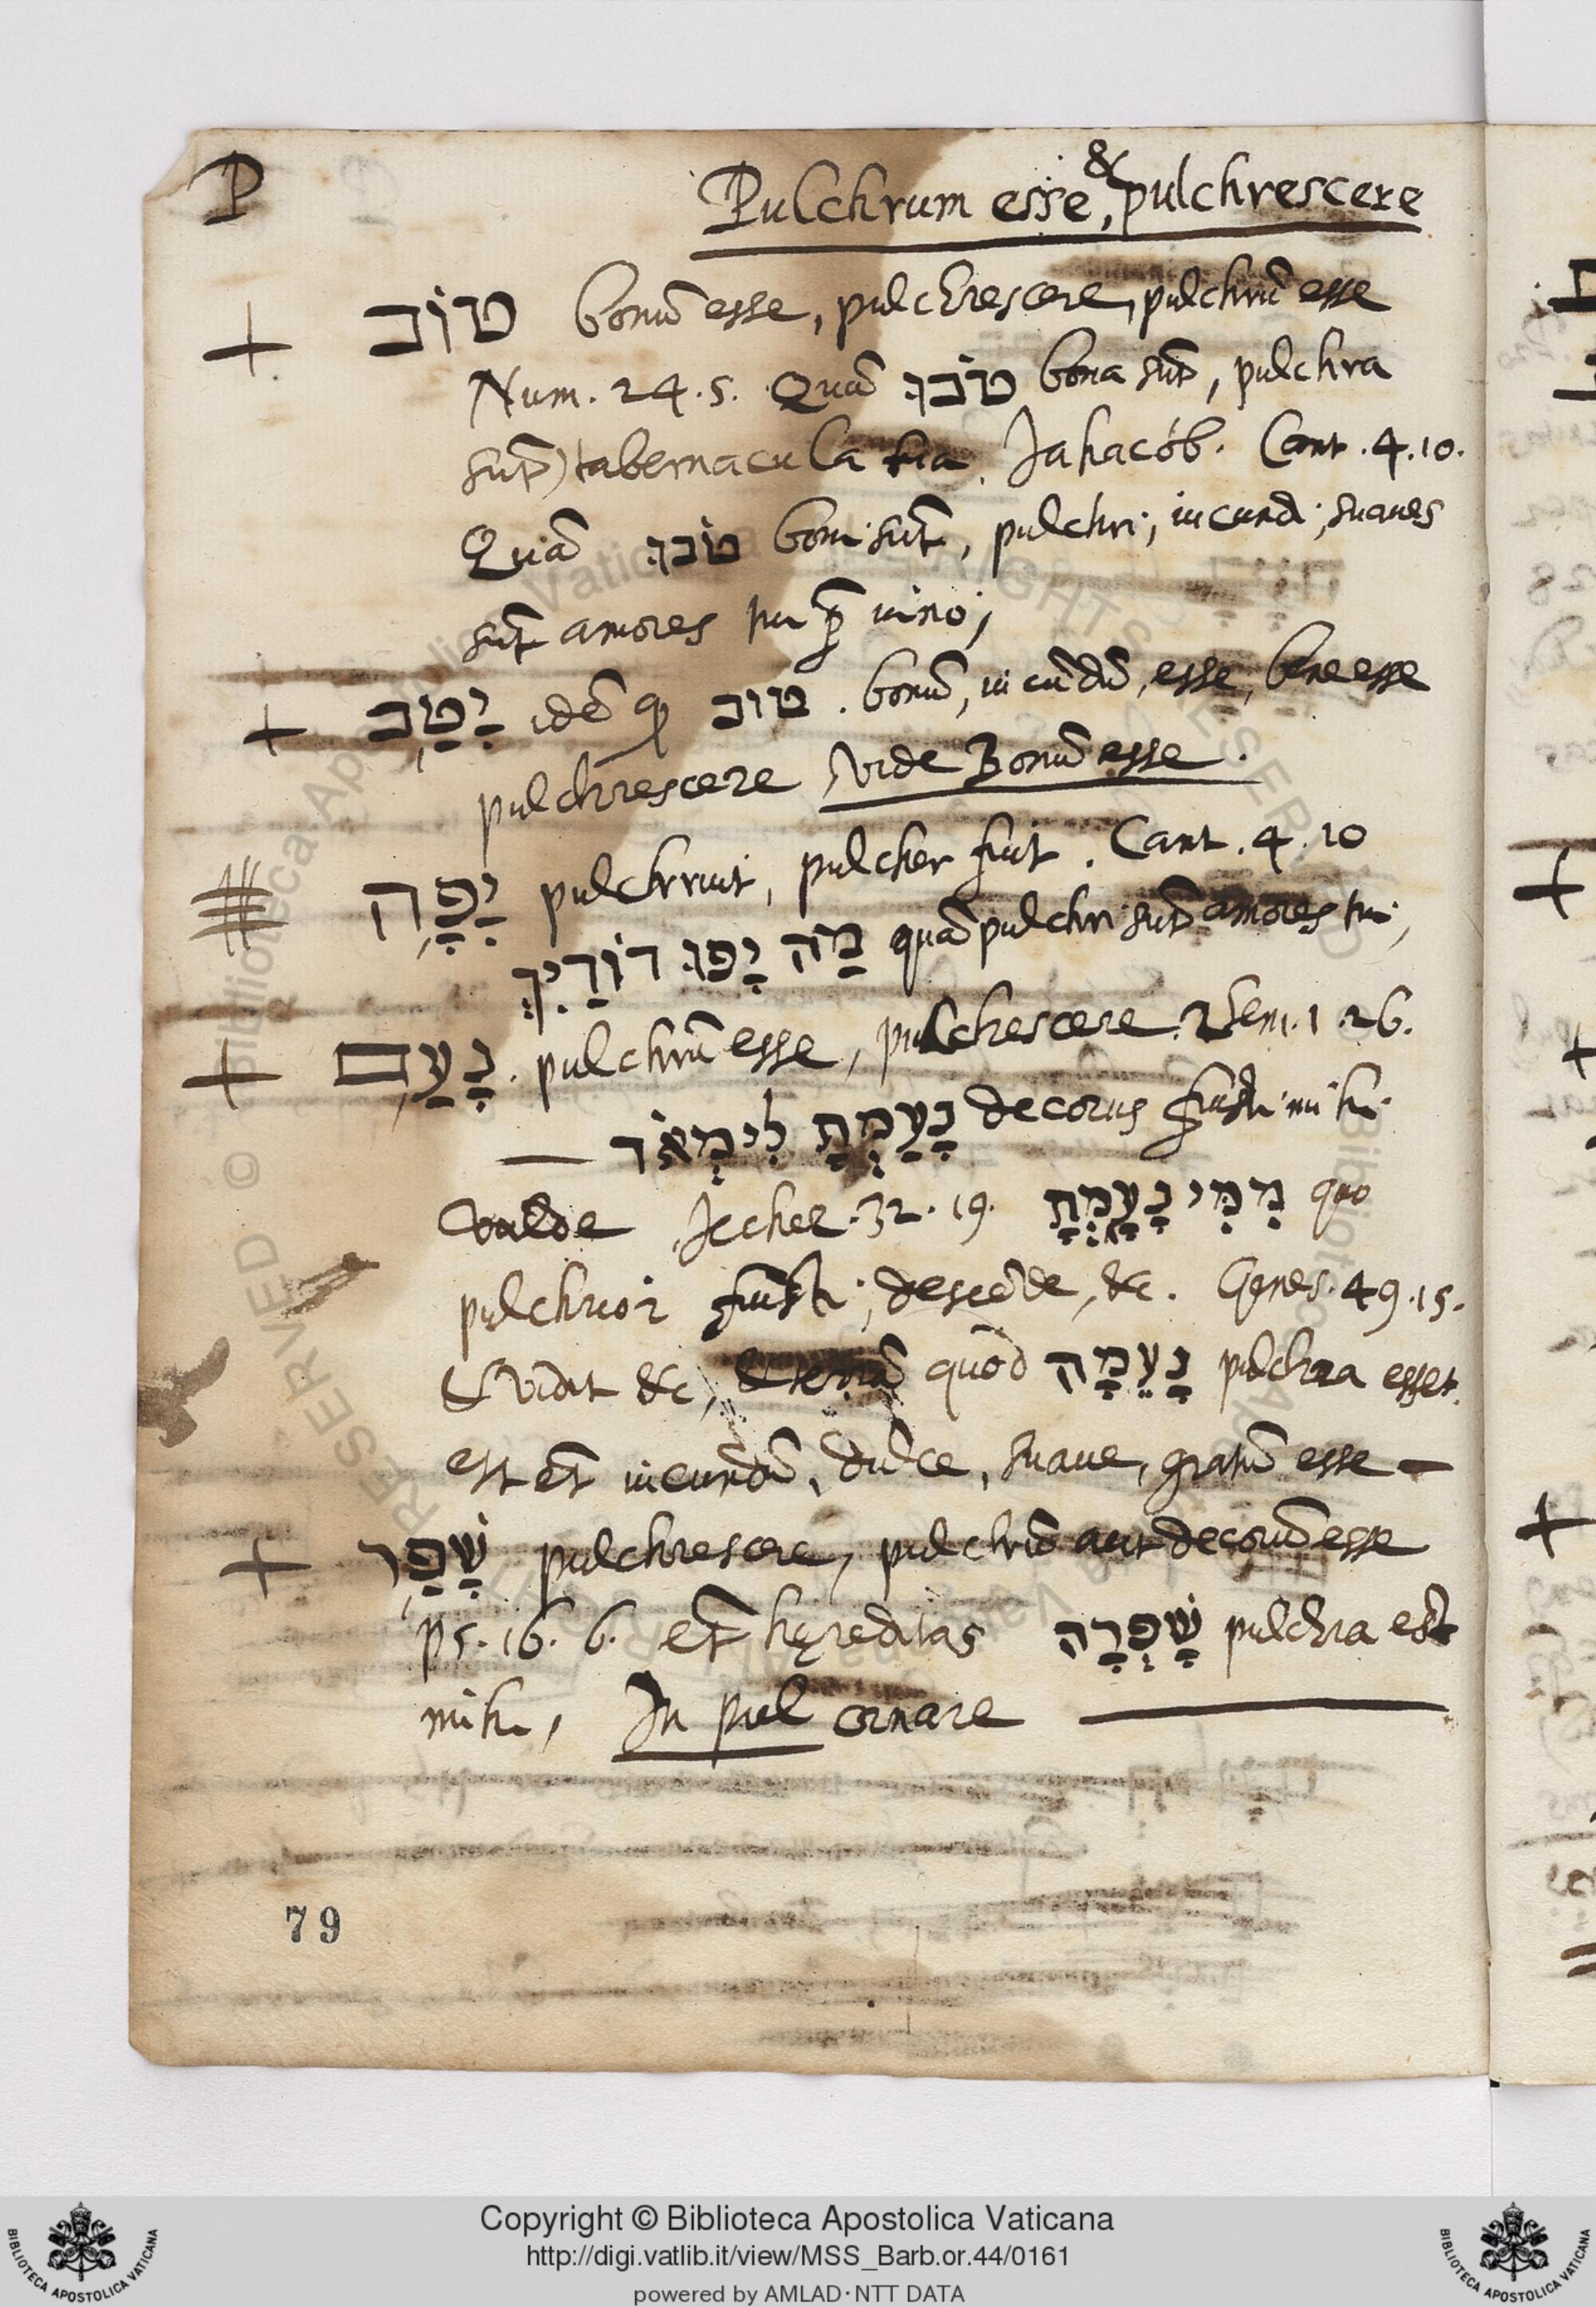 P
Pulchrum esse, & pulchrescere
+ טוֹב bonũ esse, pulchrescere, pulchrũ esse
Num. 24. 5. Quã טֹבוּ bona sũt, pulchra
sũt) tabernacula tua, Jahacób. Cant. 4. 10.
Quã טֹבוּ boni sũt, pulchri, iucundi, suaues
sũt amores tui p̃ uino,
+ יָטַב idẽ q טוב. bonũ, iucũdũ, esse, bene esse
pulchrescere Vide Bonũ esse.
יָפָה pulchruit, pulcher fuit. Cant. 4. 10
מַה יָּפוּ דוֹדַיִךְ quã pulchri sũt amores tui,
+ נָעַם. pulchrũ esse, pulchescere. 2 Sem. 1. 26.
נָעַמְתָּ לִי מְאֹד decorus fuisti mihi
valde Jechez. 32. 19. מִמִּי נָעָמְתָּ quo
pulchrior fuisti, descẽde, &c. Genes. 49. 15.
& vidit &c, & terrã quod נָעֵמָה pulchra esset.
est et̃ iucundũ, dulce, suaue, gratũ esse —
+ שָׁפַר pulchrescere, pulchrũ aut decorũ esse
ps. 16. 6. et̃ hęreditas שָׁפְרָה pulchra est
mihi, In pul ornare
79
Copyright © Biblioteca Apostolica Vaticana
http://digi.vatlib.it/view/MSS_Barb.or.44/0161
powered by AMLAD·NTT DATA
BIBLIOTECA APOSTOLICA VATICANA
BIBLIOTECA APOSTOLICA VATICANA